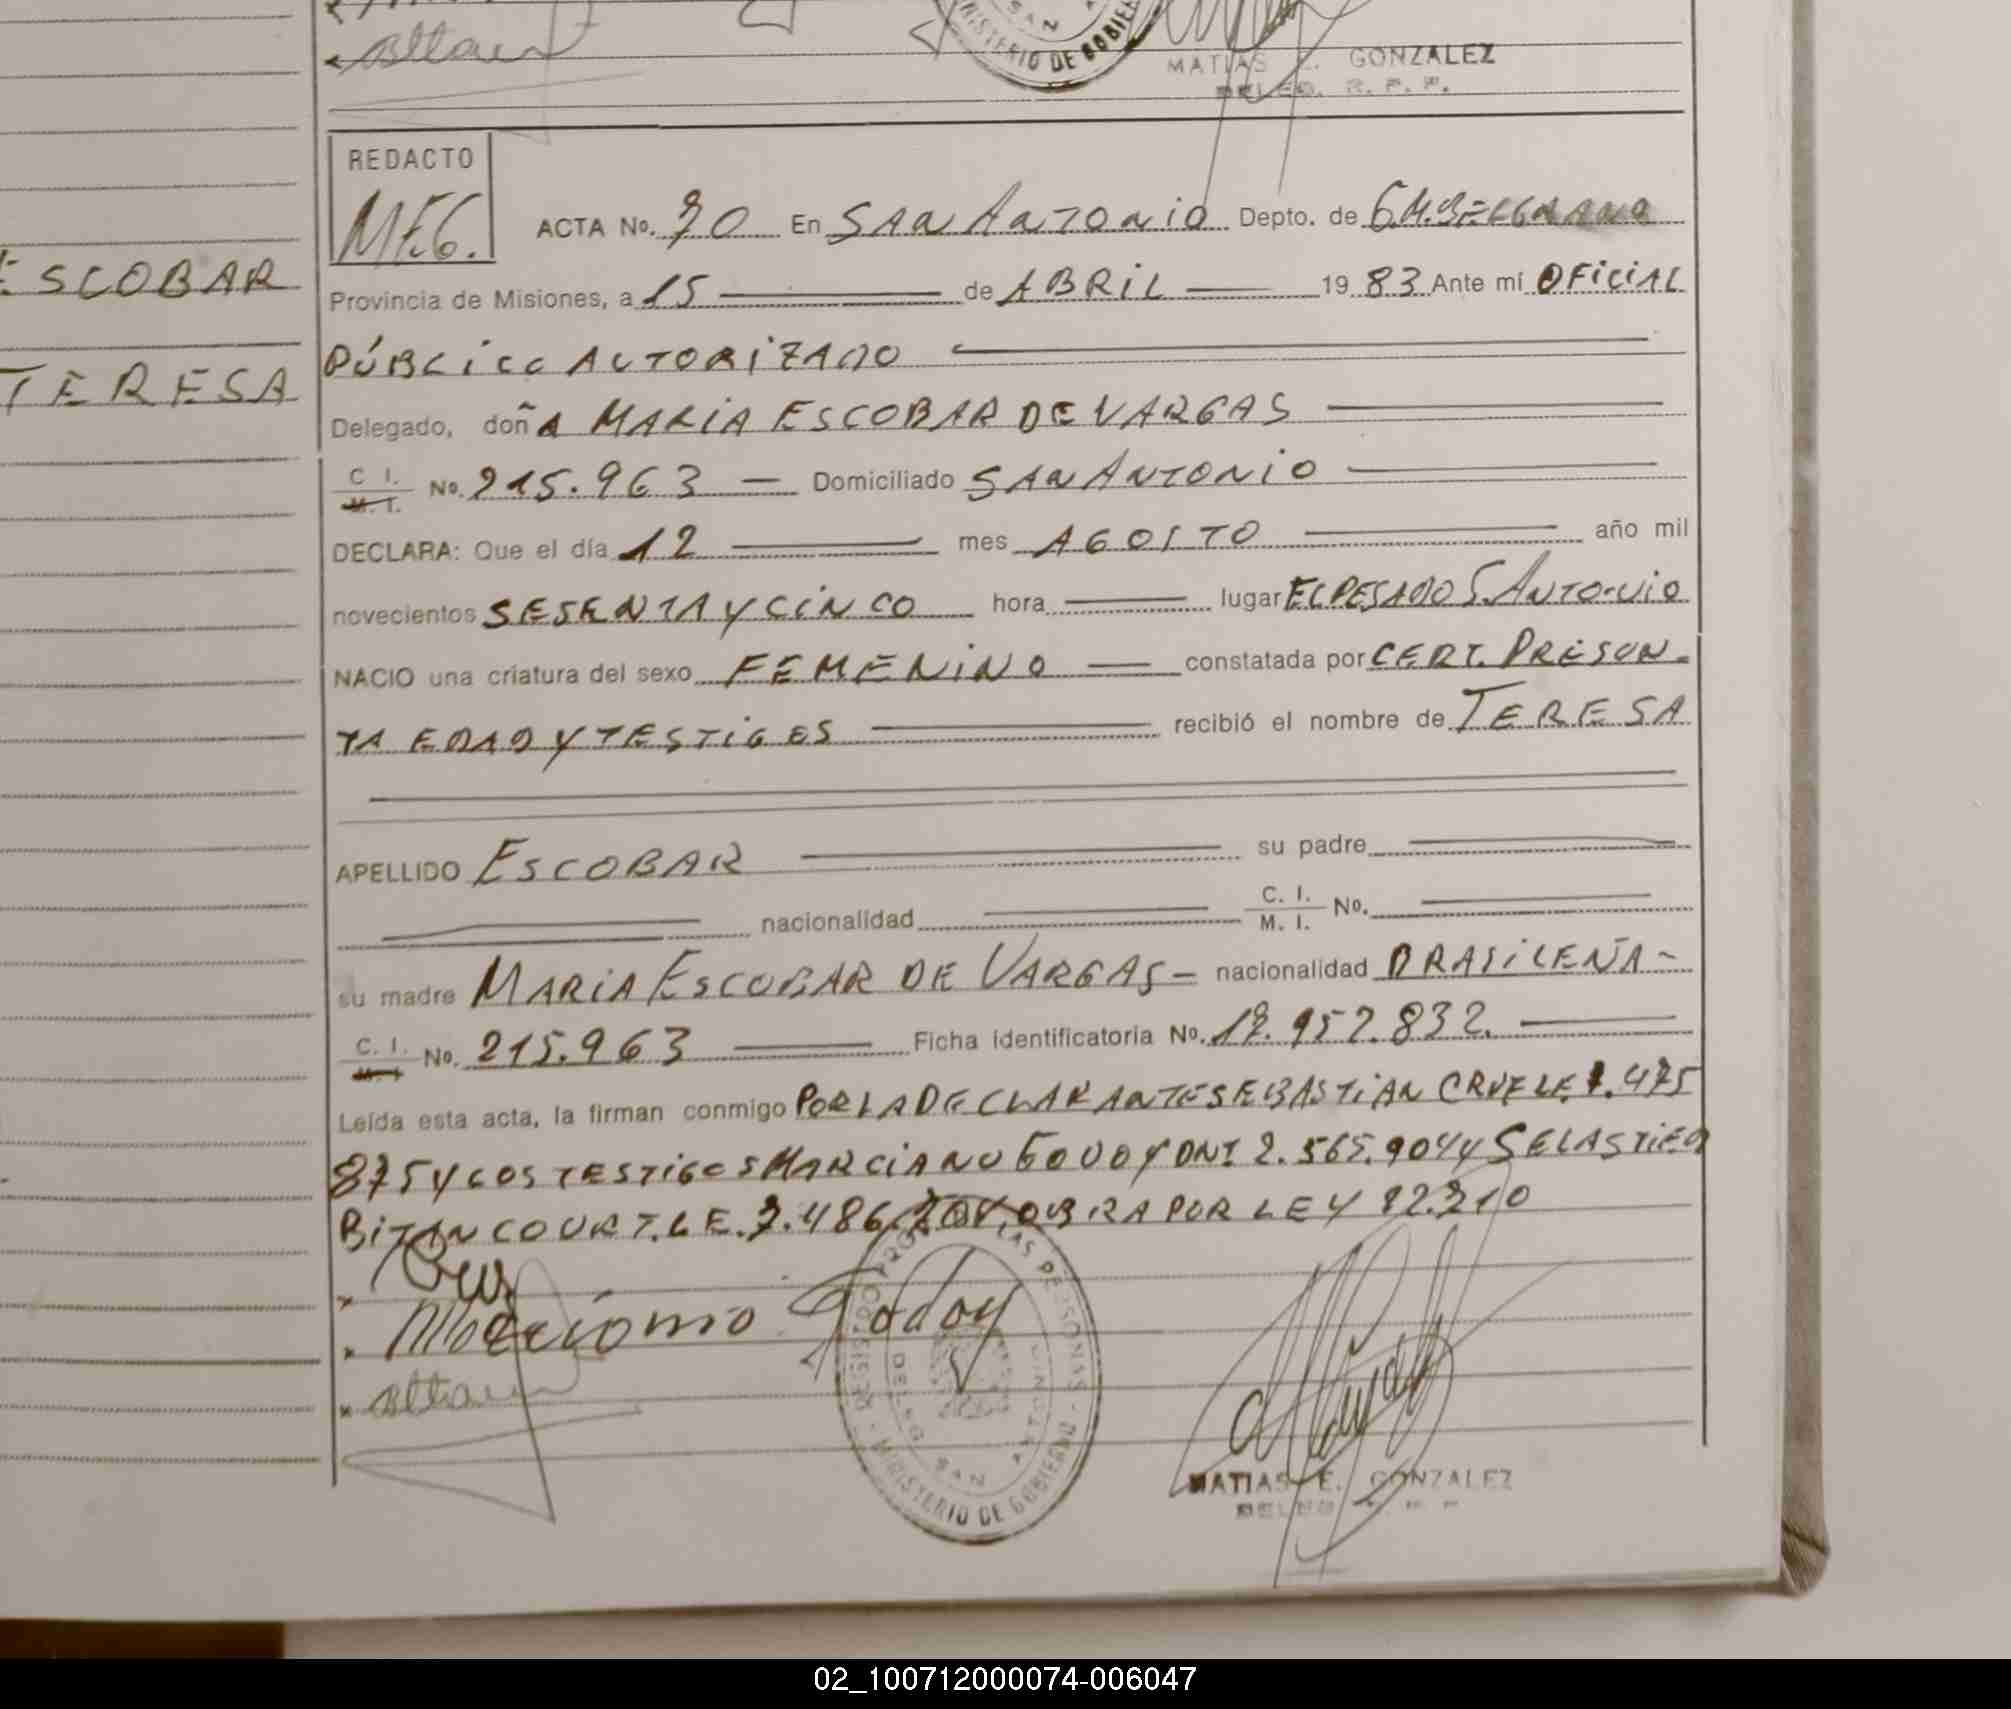 MATIAS E. GONZALEZ
DELEG. R. P. P.
MINISTERIO DE GOBIERNO
SAN
REDACTO
MEG.
ACTA No. 70 En SAN ANTONIO Depto. de G.M.BELGRANO
ESCOBAR
Provincia de Misiones, a 15 de ABRIL 1983 Ante mí OFICIAL
PÚBLICO AUTORIZADO
TERESA
Delegado, doña MARIA ESCOBAR DE VARGAS
C. I. M. I. No. 215.963 Domiciliado SAN ANTONIO
DECLARA: Que el día 12 mes AGOSTO año mil
novecientos SESENTA Y CINCO hora lugar EL PESADO S. ANTONIO
NACIO una criatura del sexo FEMENINO constatada por CERT. PRESUN-
TA EDAD Y TESTIGOS recibió el nombre de TERESA
APELLIDO ESCOBAR su padre
nacionalidad C. I. M. I. No.
su madre MARIA ESCOBAR DE VARGAS nacionalidad BRASILEÑA
C. I. M. I. No. 215.963 Ficha identificatoria No. 17.952.832.
Leída esta acta, la firman conmigo POR LA DECLARANTE SEBASTIAN L.E. 7.475
875 Y LOS TESTIGOS MARCIANO GODOY DNI 2.565.904 Y SELASTIEO
BITANCOURT. L E. 7.486. OBRA POR LEY
Marciano Godoy
REGISTRO PROV. DE LAS PERSONAS
DELEG. SAN ANTONIO
MINISTERIO DE GOBIERNO
MATIAS E. GONZALEZ
02_100712000074-006047